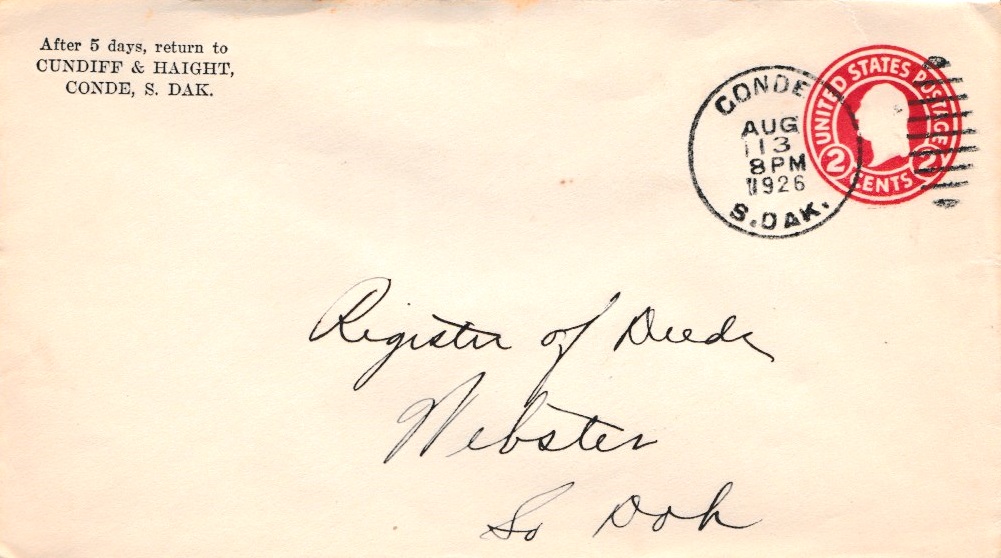 After 5 days, return to
CUNDIFF & HAIGHT,
CONDE, S. DAK.
CONDE
AUG
13
8PM
1926
S.DAK.
UNITED STATES POSTAGE
2 CENTS 2
Register of Deeds
Webster
So Dak